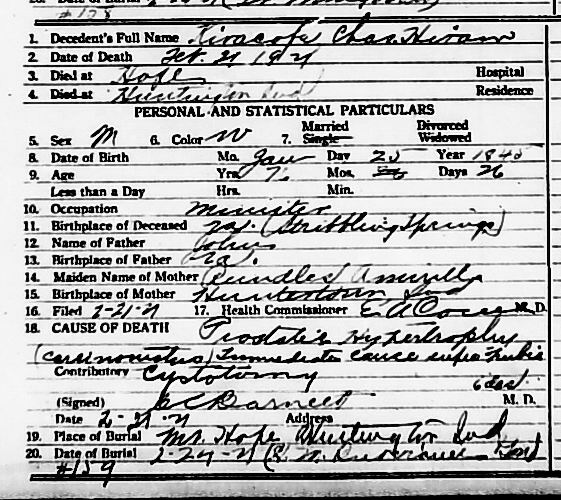 #128
1. Decedent's Full Name Kiracofe Chas. Hiram
2. Date of Death Feb. 21 1921
3. Died at Hope Hospital
4. Died at Huntington Ind Residence
PERSONAL AND STATISTICAL PARTICULARS
5. Sex M 6. Color W 7. Married Single Divorced Widowed
8. Date of Birth Mo. Jan Day 25 Year 1845
9. Age Yrs. 76 Mos. Days 26
Less than a Day Hrs. Min.
10. Occupation Minister
11. Birthplace of Deceased Va. (Stribbling Springs)
12. Name of Father John
13. Birthplace of Father Va.
14. Maiden Name of Mother Rundles
15. Birthplace of Mother Huntertown Ind
16. Filed 2-21-21 17. Health Commissioner M. D.
18. CAUSE OF DEATH Prostatic Hypertrophy
(carcinomatus) Immediate cause supra pubic
Contributory Cystotomy
6 das.
(Signed) Barnett M. D.
Date 2-21-21 Address
19. Place of Burial Mt. Hope Huntington Ind
20. Date of Burial 2-24-21
#159